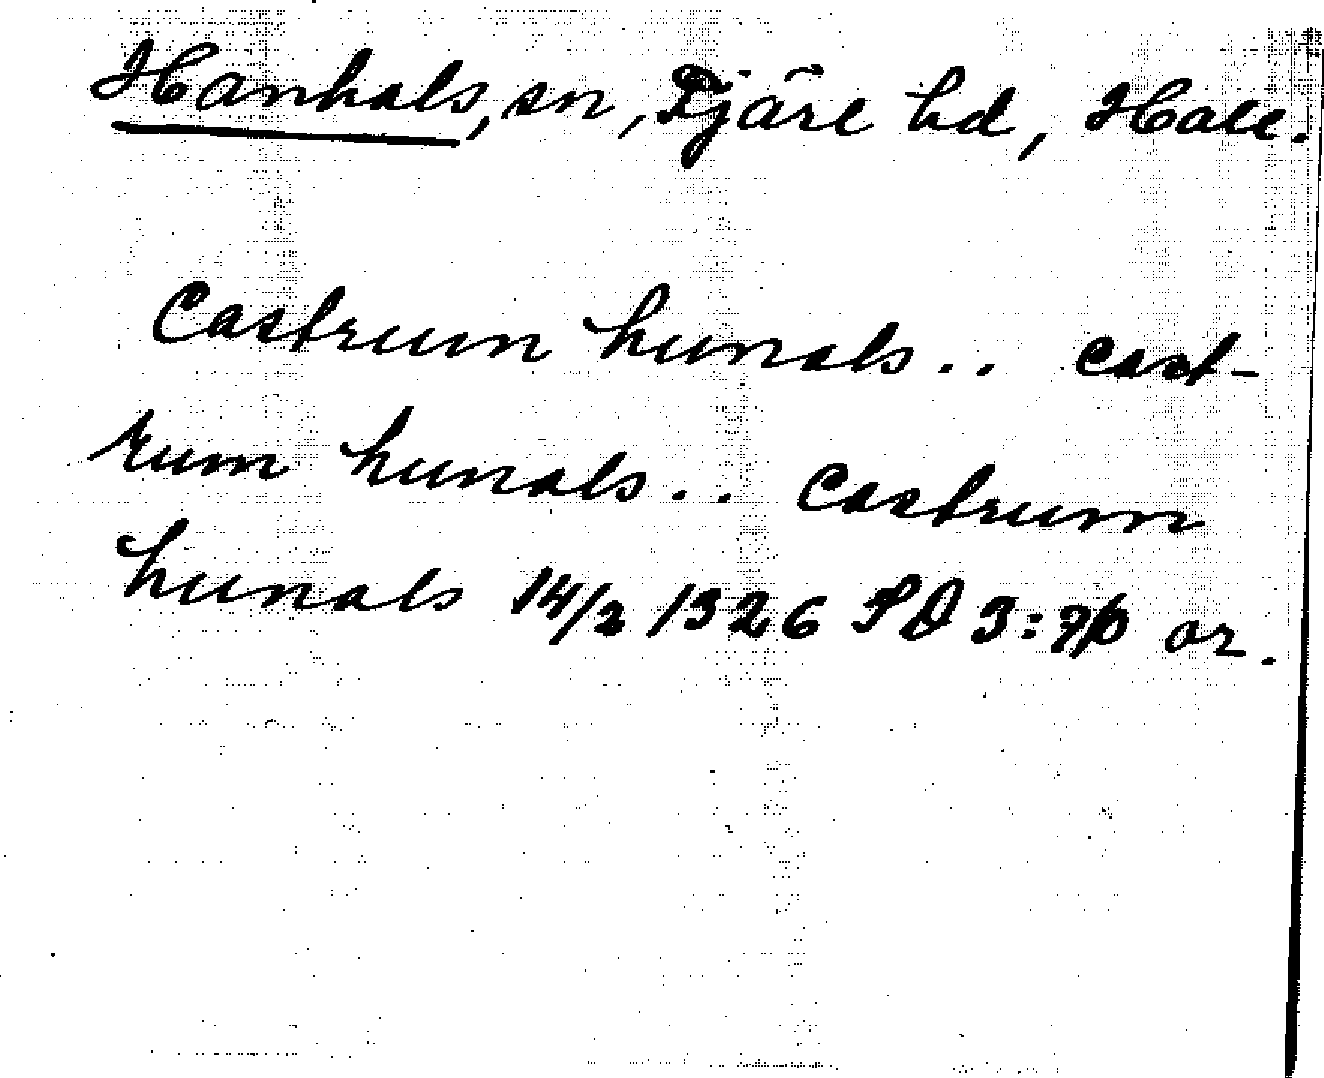 Hanhals, sn, Fjäre hd, Hall.
Castrum hunals .. cast-
rum hunals .. castrum
hunals 14/2 1326 SD 3: or.